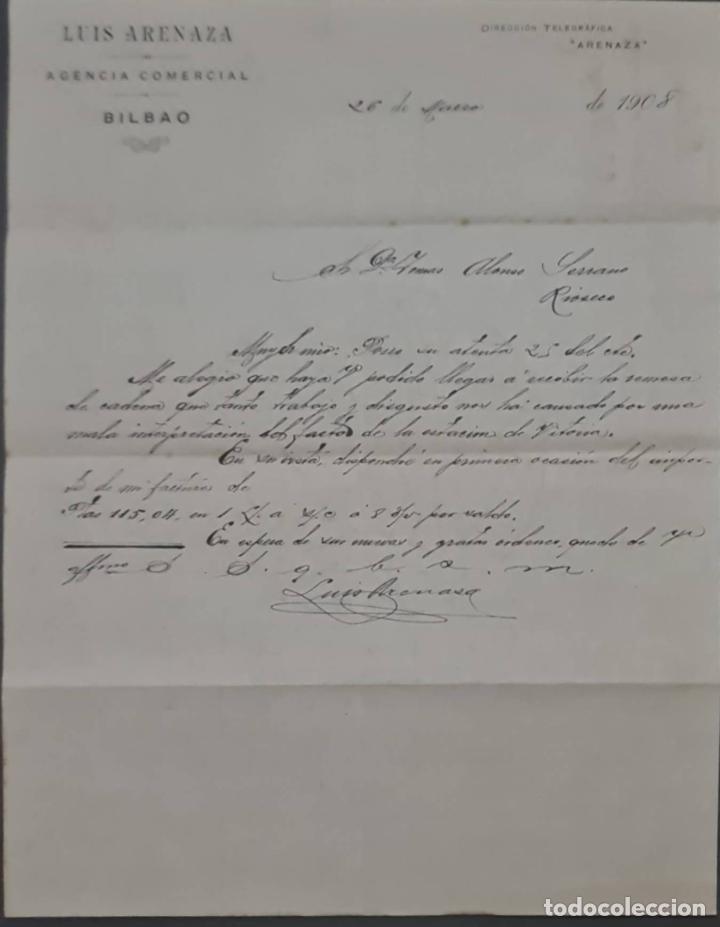 LUIS ARENAZA
AGENCIA COMERCIAL
BILBAO
DIRECCIÓN TELEGRÁFICA
"ARENAZA"
26 de Marzo de 1908
Sr Dn Tomas Alonso Serrano
Rioseco
Muy Sr mio: Poseo su atenta 25 del cte.
Me alegro que haya V podido llegar á recibir la remesa
de cadena que tanto trabajo y disgusto nos ha causado por una
mala interpretación del factor de la estacion de Vitoria.
En su vista, dispondré en primera ocasión del impor-
te de mi factura de
Ptas 115,04, en 1 L/ á s/c á 8 d/v por saldo.
En espera de sus nuevas y gratas ordenes, quedo de V
affmo S. S. q. b. s. m.
Luis Arenaza
todocoleccion